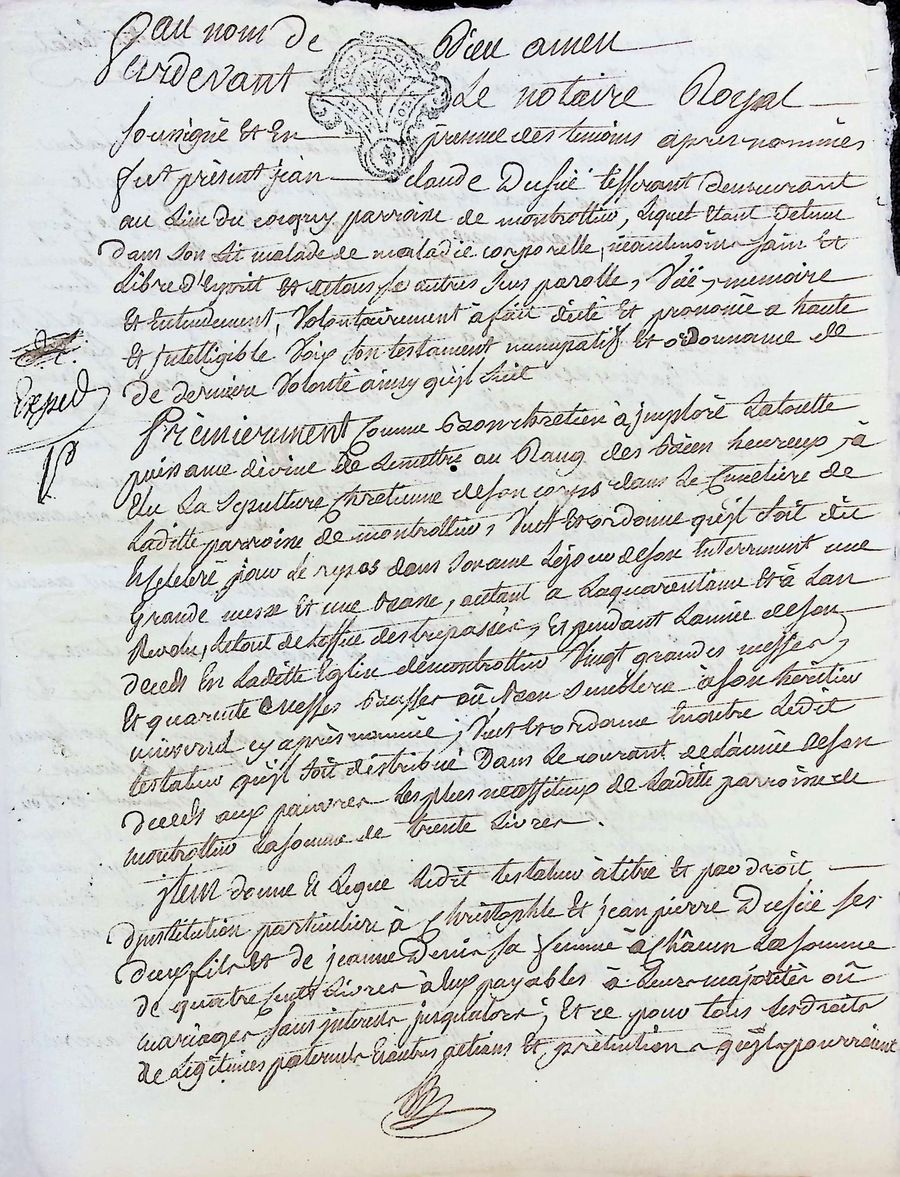 au nom de Dieu amen
Pardevant Le notaire Royal
soussigné et en presence des temoins apres nommés
fut présent jean claude Dussié tisserant demeurant
au Lieu du parroisse de montrottier, Lequel étant detenu
dans son Lit malade de maladie corporelle, neaulmoins sain et
Libre d'Esprit et de tous ses autres sens parolle, Vüe, memoire
et Entendement, Volontairement à fait dicté et prononcé a haute
et jntelligible Voix son testament nuncupatif et ordonnance de
de derniere Volonté ainsy qu'jl suit
Exped
Prèmierement Comme bon chretien à jmploré La toutte
puissance divine de Le mettre au Rang des bien heureux, à
Elu La Sepulture Chretienne de son corps dans Le Cimetiere de
Laditte parroisse de montrottier, Veut et ordonne qu'jl soit dit
et celebré pour le repos de son ame Le jour de son Enterrement une
Grande messe et une basse, autant a La quarentaine et à Lan
Revolu, Le tout de L'office des trepassés, et pendant L'année de son
deceds En Laditte Eglise de montrottier Vingt grandes messes,
et quarente messes basses où bon semblera à son héritier
universel cy après nommé; Veut et ordonne En outre Ledit
testateur qu'jl soit distribué Dans Le courant de L'année de son
deceds aux pauvres les plus necessiteux de Laditte parroisse de
montrottier La somme de trente Livres.
jtem donne et Legue Ledit testateur à titre et par droit
d'jnstitution particuliere à Christophle et jean pierre Dussié ses
deux fils et de jeanne Denis sa femme à Châcun La somme
de quatre Cents Livres à Eux payables à Leurs majorités où
mariages sans interets jusqu'alors; Et ce pour tous Les droits
de Légitimes paternels et autres actions et prètentions qu'jls pourroient